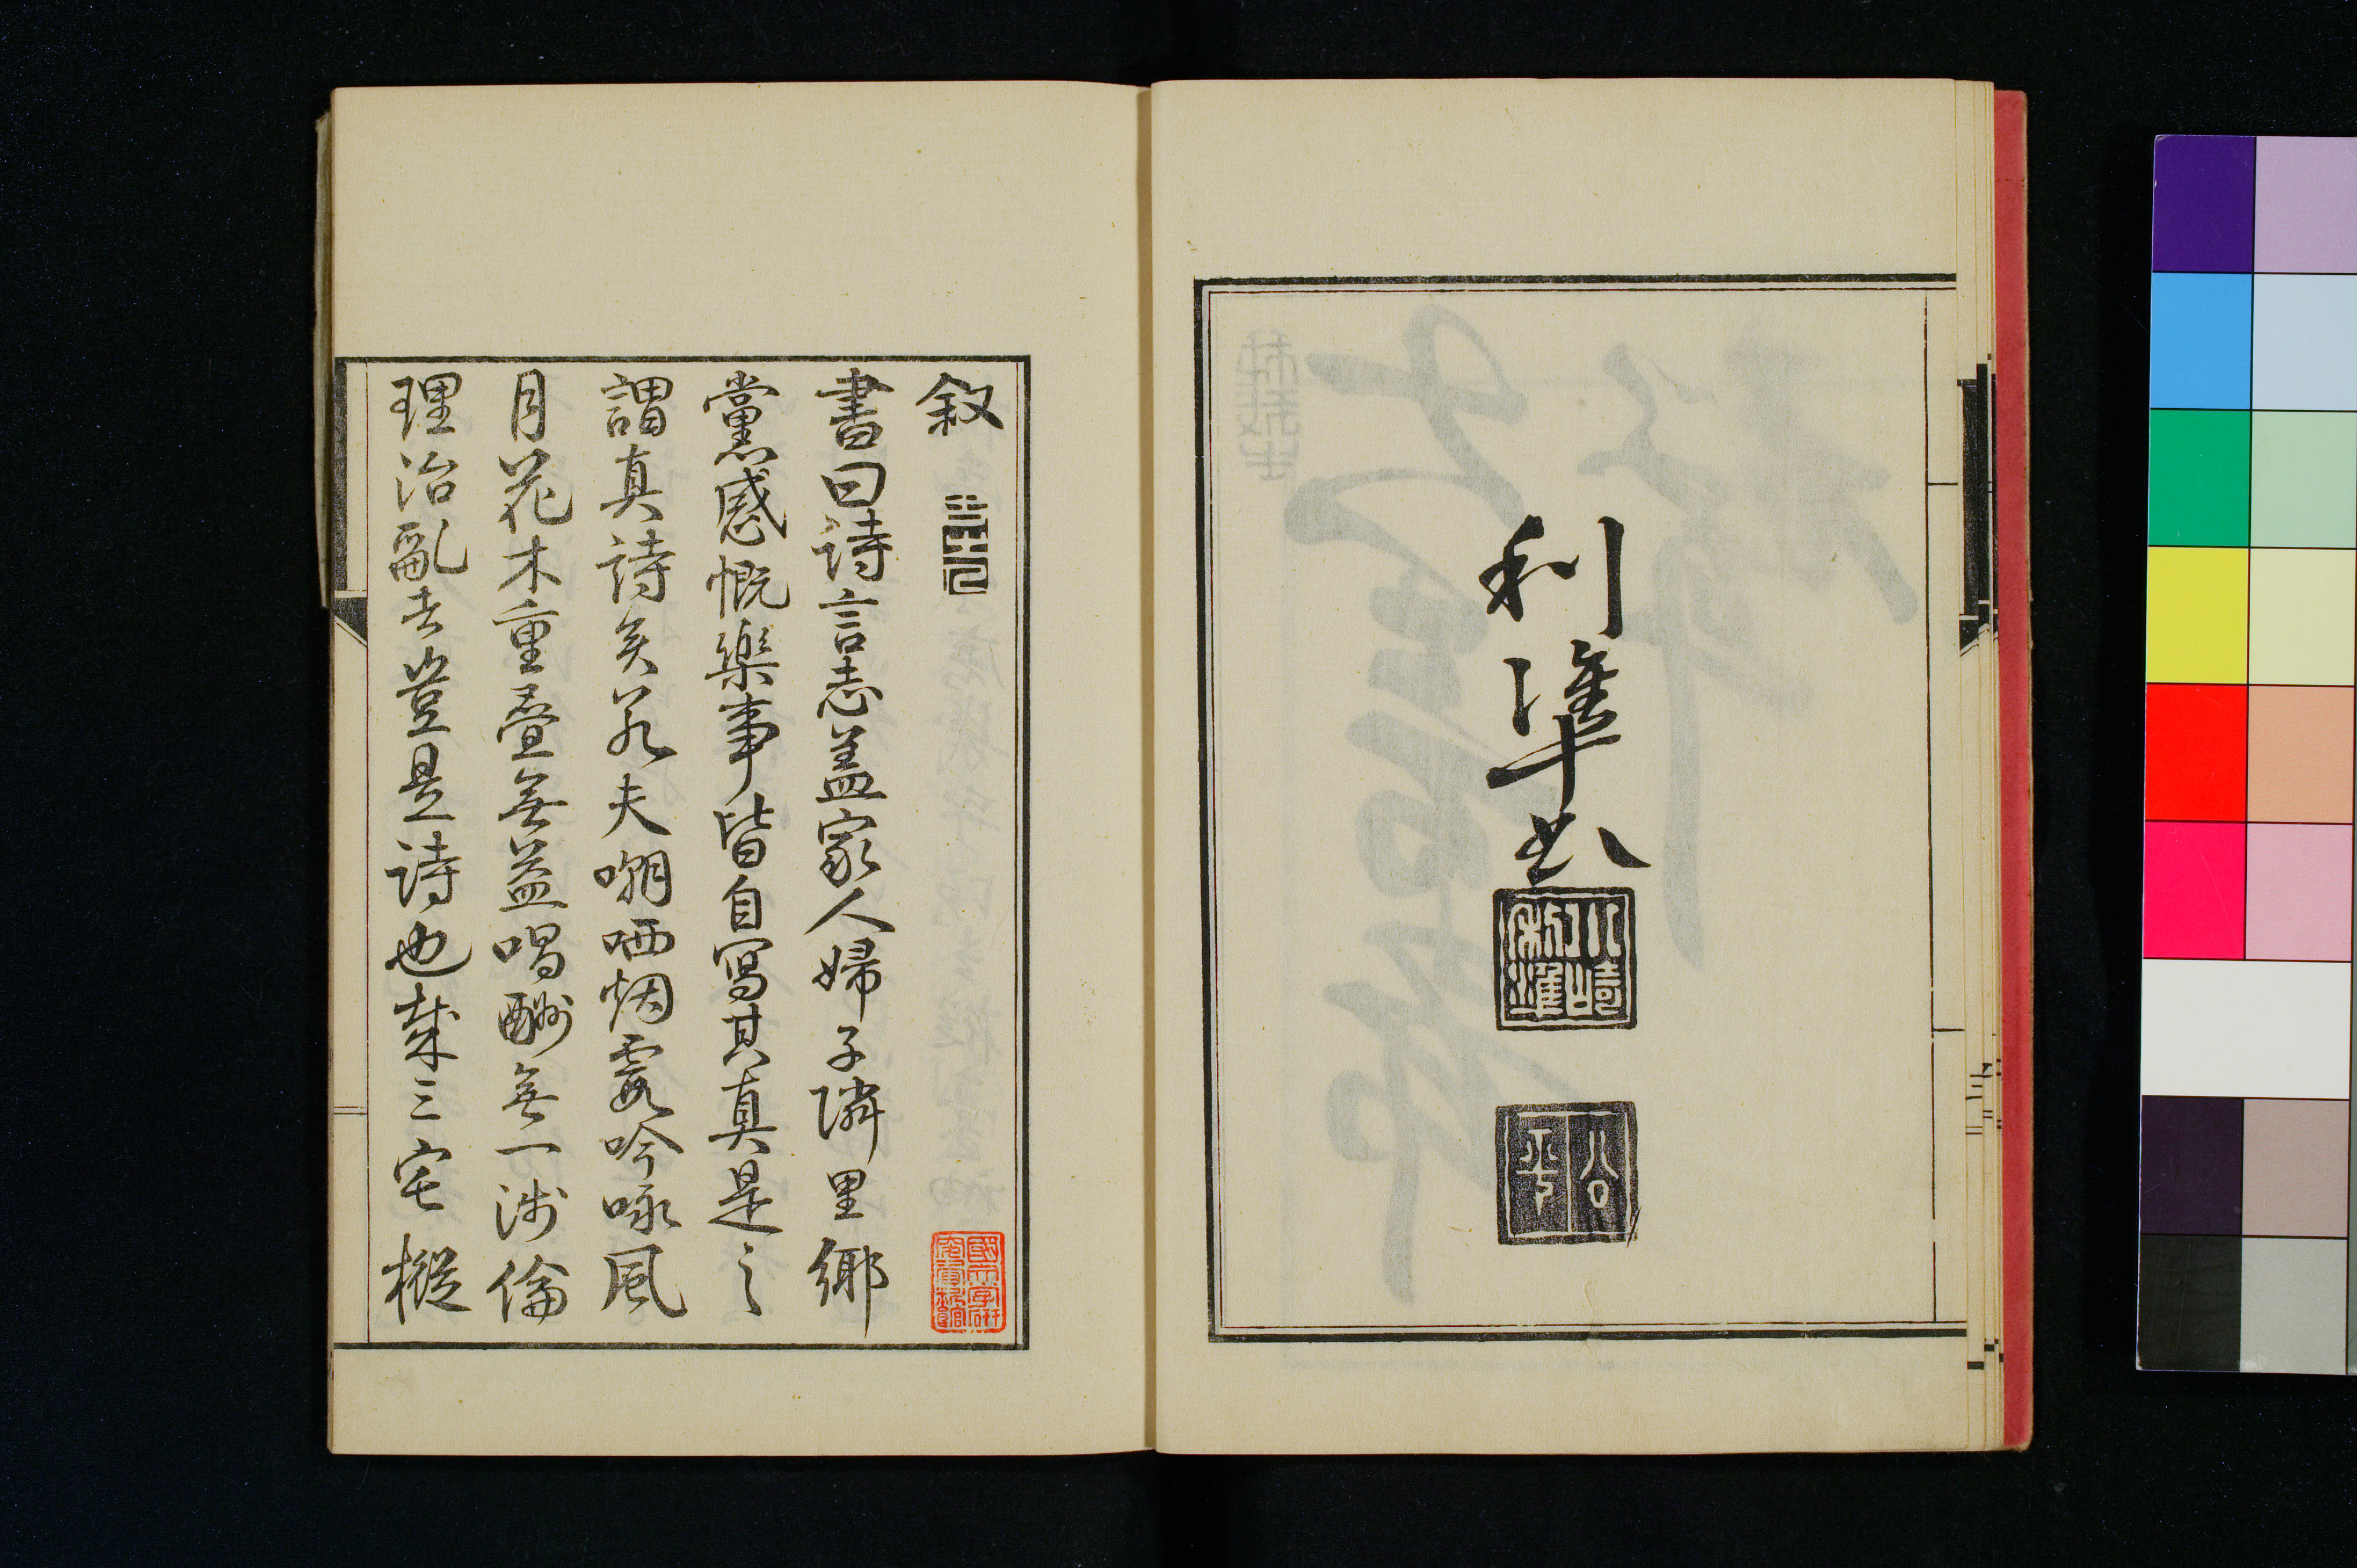 利準書
公平
叙
書曰詩言志盖家人婦子隣里鄉
黨感慨樂事皆自寫其真是之
謂真詩矣若夫嘲哂烟霞吟咏風
月花木重疊無益唱酬無一涉倫
理治亂者豈是詩也哉三宅樅